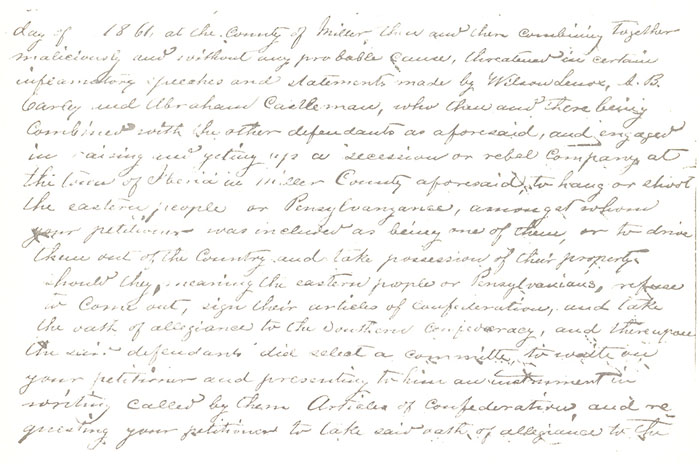 day of 1861, at the County of Miller then and there combining together
maliciously and without any probable cause, threatened in certain
inflamatory speeches and statements made by Wilson Lenox, A. B.
Carley and Abraham Castleman, who then and there being
combined with the other defendants as aforesaid, and engaged
in raising and geting up a secession or rebel company at
the town of Iberia in Miller County aforesaid, to hang or shoot
the eastern people or Pensylvangance, amongst whom
your petitioner was included as being one of them, or to drive
them out of the Country and take possession of their property
should they, meaning the eastern people or Pensylvanians, refuse
to come out, sign their articles of confederation, and take
the oath of allegiance to the Southern Confederacy, and thereupon
the said defendants did select a committe to waite on
your petitioner and presenting to him an instrument in
writing called by them Articles of confederation, and re
questing your petitioner to take said oath of allegiance to the